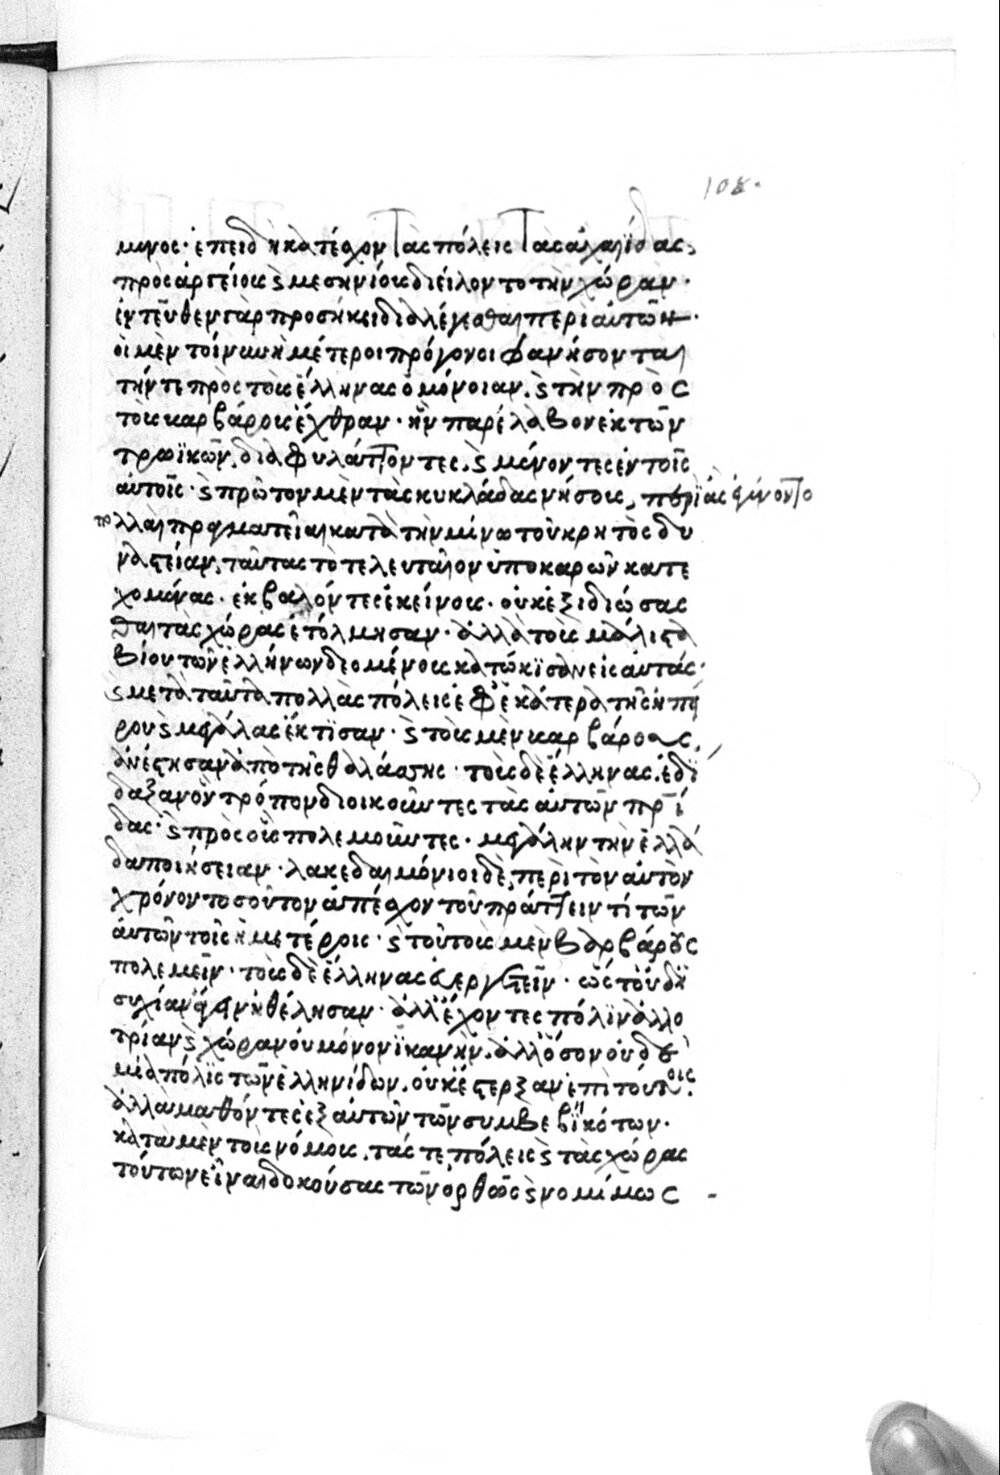 108.
μηνος· ἐπειδὴ κατέσχον τὰς πόλεις τὰς ἀχαιΐδας,
πρὸς ἀργείους ϗ μεσηνίους διείλοντο τὴν χώραν·
ἐντεῦθεν γὰρ προσήκει διαλέγεσθαι περὶ αὐτῶν·
οἱ μὲν τοίνυν ἡμέτεροι πρόγονοι φανήσονται
τήν τε πρὸς τοὺς ἕλληνας ὁμόνοιαν. ϗ τὴν πρὸς
τοὺς βαρβάρους ἔχθραν· ἣν παρέλαβον ἐκ τῶν
τρωϊκῶν. διαφυλάττοντες. ϗ μένοντες ἐν τοῖς
αὐτοῖς· ϗ πρῶτον μὲν τὰς κυκλάδας νήσους, περὶ ἃς ἐγίνοντο
πολλαὶ πραγματεῖαι κατὰ τὴν μίνω τοῦ κρητὸς δυ
ναστείαν, ταύτας τὸ τελευταῖον ὑπὸ καρῶν κατε
χομένας. ἐκβαλόντες ἐκείνους. οὐκ ἐξιδιώσας
θαι τὰς χώρας ἐτόλμησαν· ἀλλὰ τοὺς μάλιστα
βίου τῶν ἑλλήνων δεομένους κατώκισαν εἰς αὐτάς·
ϗ μετὰ ταῦτα πολλὰς πόλεις ἐφ' ἑκάτερα τῆς ἠπεί
ρου ϗ μεγάλας ἔκτισαν· ϗ τοὺς μὲν βαρβάρους,
ἀνέστησαν ἀπὸ τῆς θαλάσσης· τοὺς δὲ ἕλληνας. ἐδί
δαξαν ὃν τρόπον διοικοῦντες τὰς αὐτῶν πρί
δας· ϗ πρὸς οὓς πολεμοῦντες· μεγάλην τὴν ἑλλά
δα ποιήσειαν· λακεδαιμόνιοι δὲ, περὶ τὸν αὐτὸν
χρόνον τοσοῦτον ἀπέσχον τοῦ πράττειν τί τῶν
αὐτῶν τοῖς ἡμετέροις· ϗ τούτοις μὲν βαρβάρους
πολεμεῖν· τοὺς δὲ ἕλληνας εὐεργετεῖν· ὥστ' οὐδ' ἡ
συχίαν ἄγειν ἠθέλησαν· ἀλλ' ἔχοντες πόλιν ἀλλο
τρίαν ϗ χώραν οὐ μόνον ἱκανὴν. ἀλλ' ὅσον οὐδε
μία πόλις τῶν ἑλληνίδων. οὐκ ἔστερξαν ἐπὶ τούτοις.
ἀλλὰ μαθόντες ἐξ αὐτῶν τῶν συμβεβηκότων.
κατὰ μὲν τοὺς νόμους. τάς τε πόλεις ϗ τὰς χώρας
τούτων εἶναι δοκούσας τῶν ὀρθῶς ϗ νομίμως